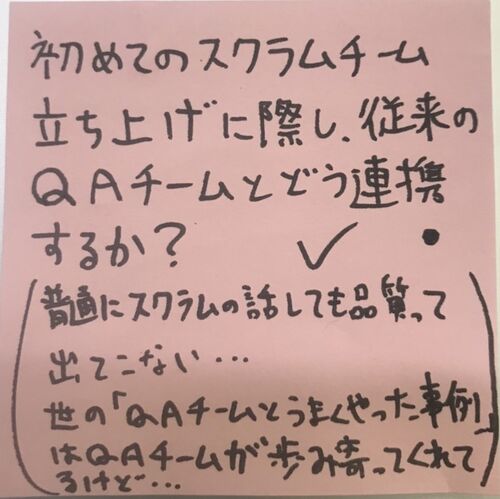 初めてのスクラムチーム
立ち上げに際し、従来の
QAチームとどう連携
するか?
(普通にスクラムの話しても品質って
出てこない…
世の「QAチームとうまくやった事例」
はQAチームが歩み寄ってくれて
るけど…)